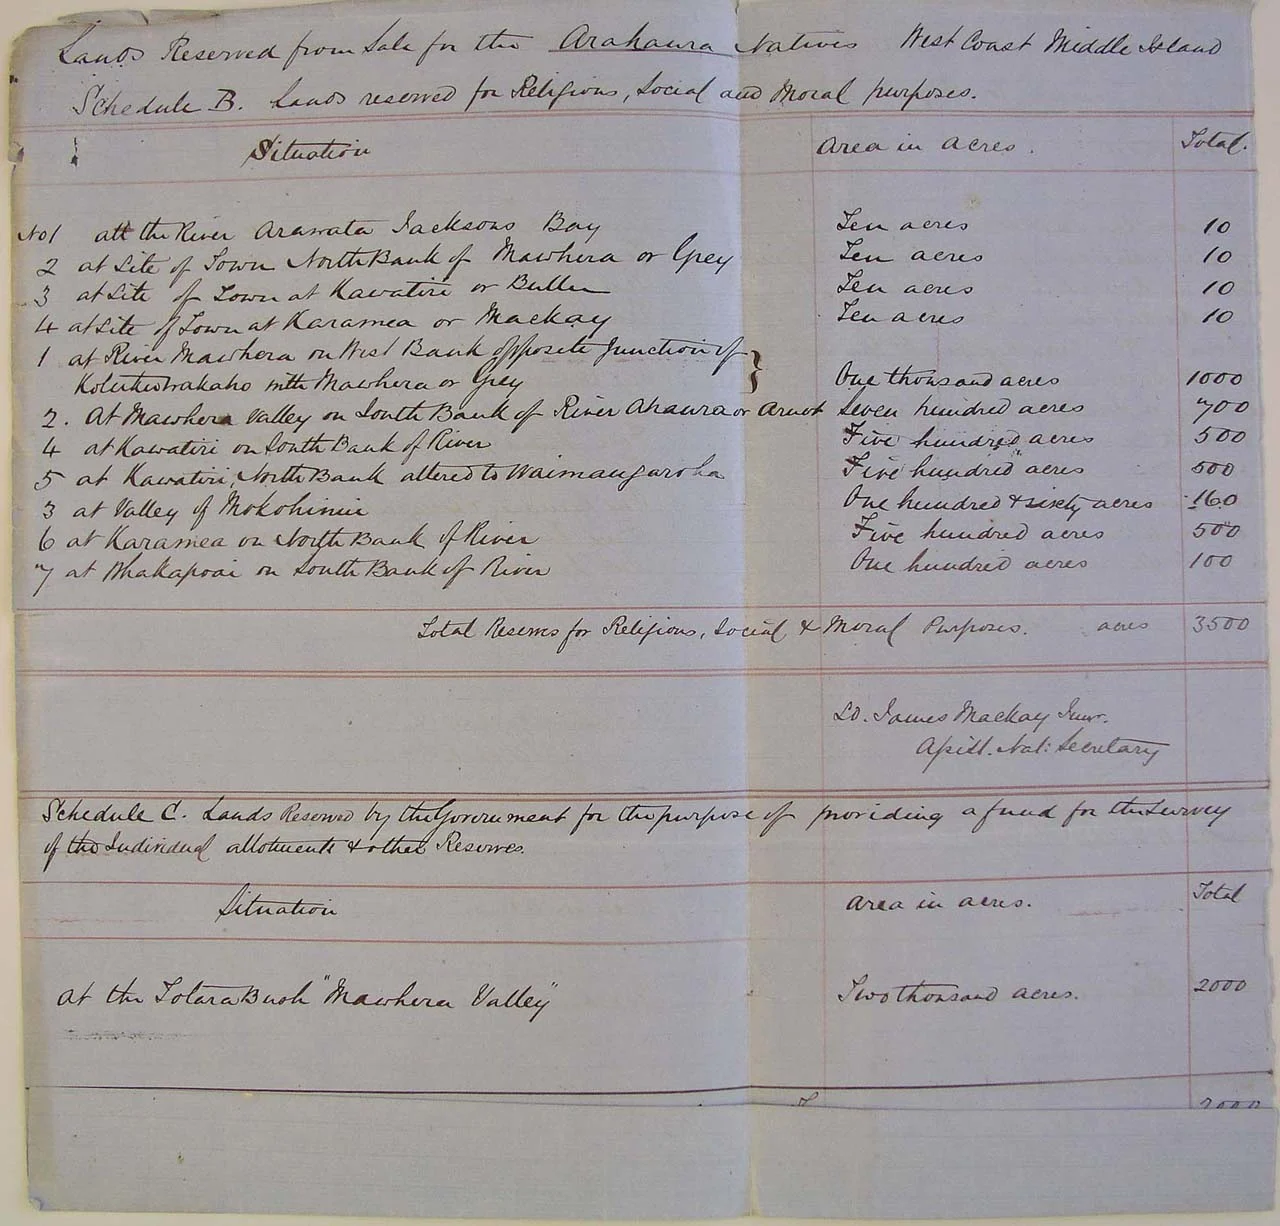 Lands Reserved from Sale for the Arahaura Natives West Coast Middle Island
Schedule B. Lands reserved for Religious, Social and Moral purposes.
Situation Area in acres. Total.
No 1 at the River Arawata Jacksons Bay Ten acres 10
2 at Site of Town North Bank of Mawhera or Grey Ten acres 10
3 at Site of Town at Kawatiri or Buller Ten acres 10
4 at Site of Town at Karamea or Mackay Ten acres 10
1 at River Mawhera on West Bank opposite Junction of
with Mawhera or Grey One thousand acres 1000
2. At Mawhera Valley on South Bank of River Ahaura or Arnot Seven hundred acres 700
4 at Kawatiri on South Bank of River Five hundred acres 500
5 at Kawatiri, North Bank altered to Waimangaroha Five hundred acres 500
3 at Valley of Mokohinui One hundred & sixty acres 160
6 at Karamea on North Bank of River Five hundred acres 500
7 at Whakapoai on South Bank of River One hundred acres 100
Total Reserves for Religious, Social & Moral Purposes. acres 3500
James Mackay Junr.
Assist. Nat: Secretary
Schedule C. Lands Reserved by the Government for the purpose of providing a fund for the Survey
of the Individual allotments & other Reserves.
Situation Area in acres. Total
At the Totara Bush "Mawhera Valley" Two thousand acres. 2000
2000